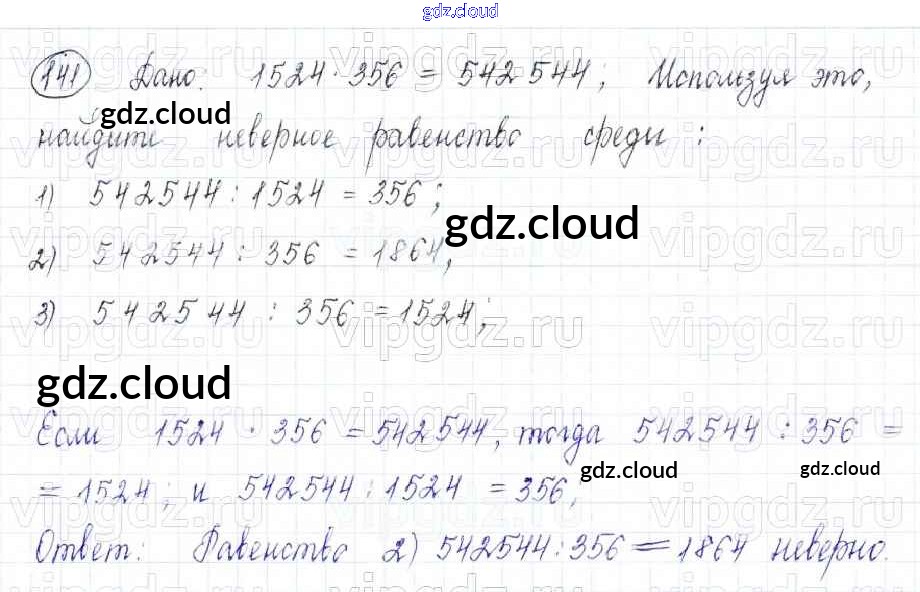 gdz.cloud
141 Дано: 1524 · 356 = 542544; Используя это,
gdz.cloud
найдите неверное равенство среди:
1) 542544 : 1524 = 356;
gdz.cloud
2) 542544 : 356 = 1864;
3) 542544 : 356 = 1524;
gdz.cloud
Если 1524 · 356 = 542544, тогда 542544 : 356 =
gdz.cloud
gdz.cloud
= 1524; и 542544 : 1524 = 356,
Ответ: Равенство 2) 542544 : 356 = 1864 неверно.